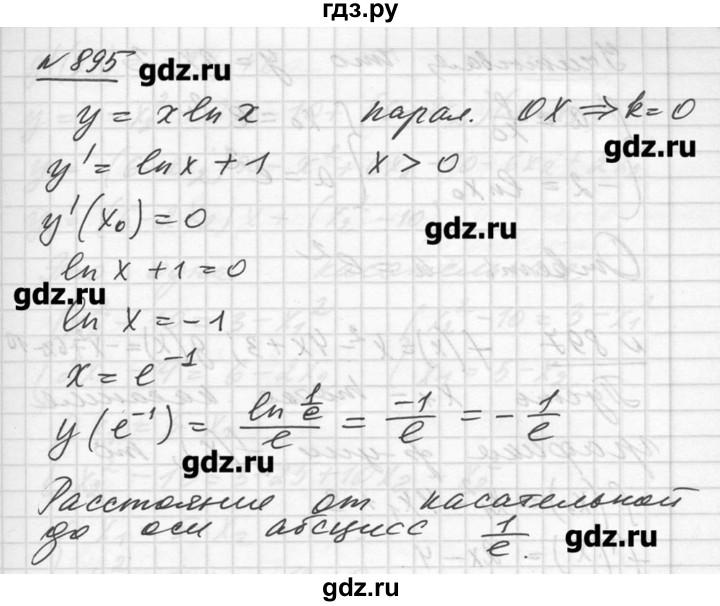 гдз.ру
№895
gdz.ru
y = x ln x парал. OX ⇒ k = 0
gdz.ru
y' = ln x + 1 x > 0
y'(x₀) = 0
gdz.ru
ln x + 1 = 0
gdz.ru
ln x = -1
x = e⁻¹
y(e⁻¹) = (ln 1/e)/e = -1/e = -1/e
gdz.ru
Расстояние от касательной
до оси абсцисс 1/e.
gdz.ru
gdz.ru